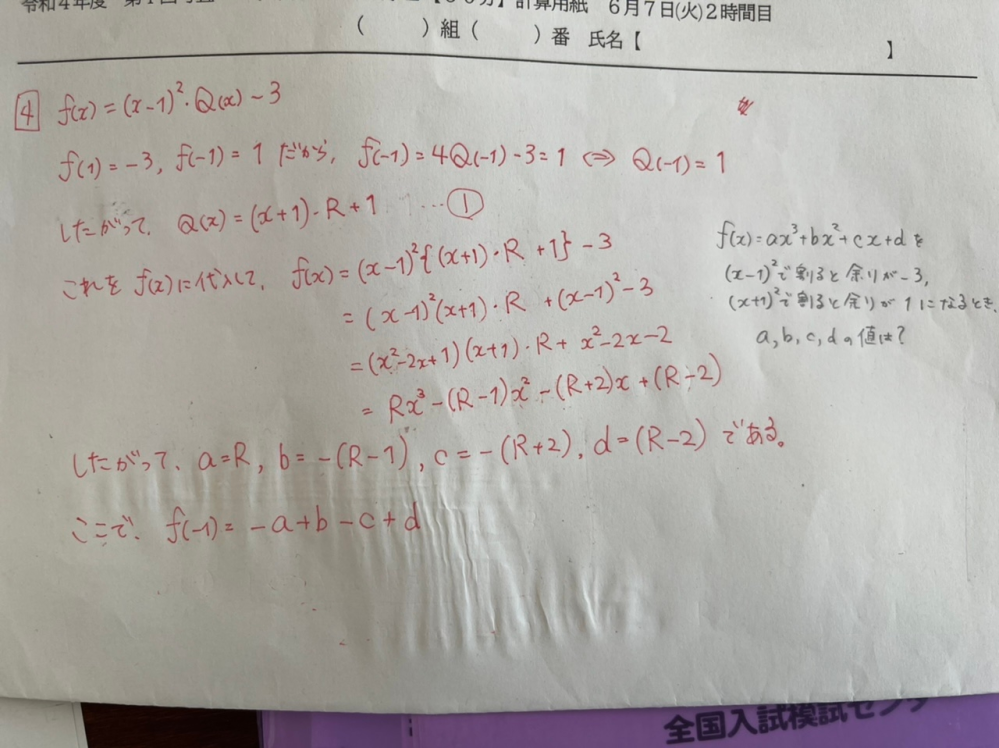 令和4年度 第1回 計算用紙 6月7日(火)2時間目
( )組( )番 氏名【 】
4 f(x)=(x-1)²・Q(x)-3
f(1)=-3, f(-1)=1 だから, f(-1)=4Q(-1)-3=1 ⇔ Q(-1)=1
したがって, Q(x)=(x+1)・R+1 …①
これを f(x)に代入して, f(x)=(x-1)²{(x+1)・R+1}-3
=(x-1)²(x+1)・R+(x-1)²-3
=(x²-2x+1)(x+1)・R+x²-2x-2
=Rx³-(R-1)x²-(R+2)x+(R-2)
したがって, a=R, b=-(R-1), c=-(R+2), d=(R-2) である。
ここで, f(-1)=-a+b-c+d
f(x)=ax³+bx²+cx+dを
(x-1)²で割ると余りが-3,
(x+1)²で割ると余りが1になるとき,
a,b,c,dの値は?
全国入試模試センター